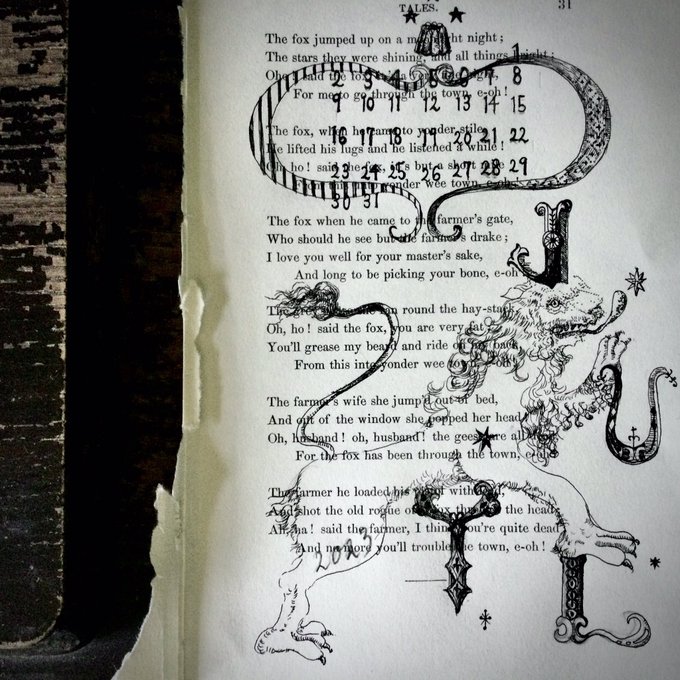 TALES. 31
The fox jumped up on a night;
The stars they were shining, and all things bright;
Oh, said the fox,
For me to go through the town, e-oh!
1
2 3 4 5 6 7 8
9 10 11 12 13 14 15
16 17 18 19 20 21 22
23 24 25 26 27 28 29
30 31
The fox, when he came to yonder stile,
He lifted his lugs and he listened a while!
Oh, ho! said the fox, it's but a short
this into yonder wee town, e-oh!
The fox when he came to the farmer's gate,
Who should he see but the farmer's drake;
I love you well for your master's sake,
And long to be picking your bone, e-oh
J
The grey round the hay-stack,
Oh, ho! said the fox, you are very fat
You'll grease my beard and ride on my back
From this into yonder wee
U
The farmer's wife she jump'd out of bed,
And out of the window she popped her head!
Oh, husband! oh, husband! the geese are all
For the fox has been through the town, e-oh!
The farmer he loaded his with
And shot the old rogue of a fox through the head;
Ah, ha! said the farmer, I think you're quite dead
And no more you'll trouble the town, e-oh!
2023
I L